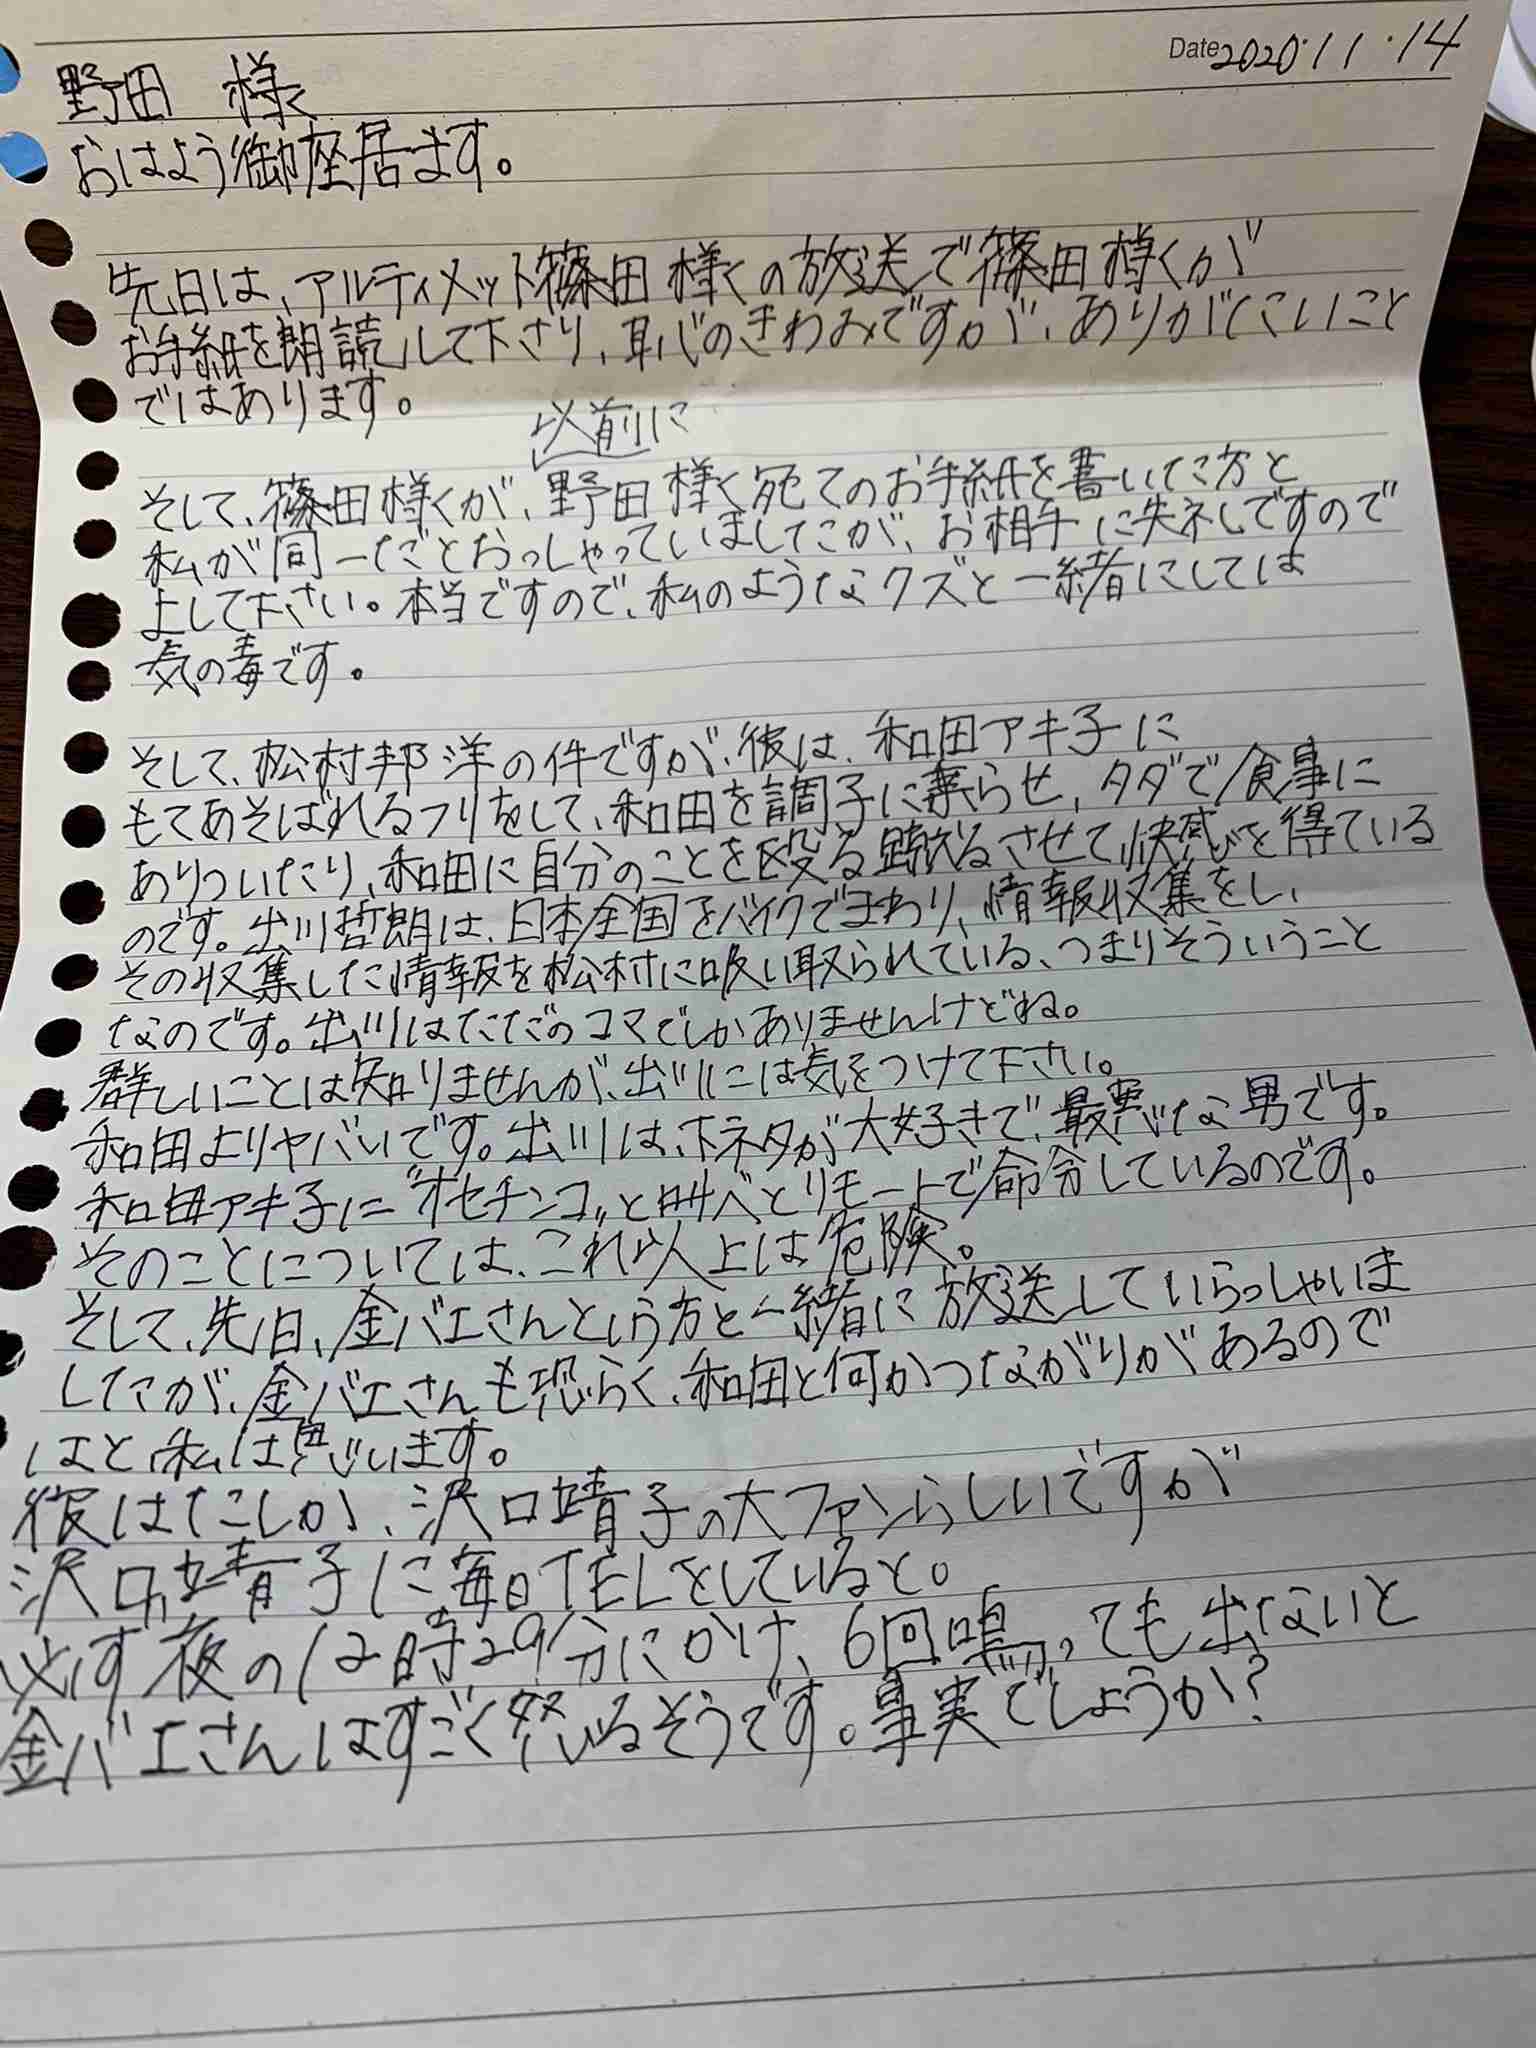 Date 2020・11・14
野田 様
おはよう御座居ます。
先日は、アルティメット篠田様の放送で篠田様が
お手紙を朗読して下さり、恥のきわみですが、ありがたいこと
ではあります。
以前に
そして、篠田様が、野田様宛てのお手紙を書いた方と
私が同一だとおっしゃっていましたが、お相手に失礼ですので
よして下さい。本当ですので、私のようなクズと一緒にしては
気の毒です。
そして、松村邦洋の件ですが、彼は、和田アキ子に
もてあそばれるフリをして、和田を調子に乗らせ、タダで食事に
ありついたり、和田に自分のことを殴る蹴るさせて快感を得ている
のです。出川哲朗は、日本全国をバイクでまわり、情報収集をし、
その収集した情報を松村に吸い取られている、つまりそういうこと
なのです。出川はただのコマでしかありませんけどね。
詳しいことは知りませんが、出川には気をつけて下さい。
和田よりヤバいです。出川は、下ネタが大好きで、最悪な男です。
和田アキ子に"オセチンコ"と叫べとリモートで命令しているのです。
そのことについては、これ以上は危険。
そして、先日、金バエさんという方と一緒に放送していらっしゃいま
したが、金バエさんも恐らく、和田と何かつながりがあるので
はと私は思います。
彼はたしか、沢口靖子の大ファンらしいですが
沢口靖子に毎日TELをしていると。
必ず夜の12時29分にかけ、6回鳴っても出ないと
金バエさんはすごく怒るそうです。事実でしょうか?